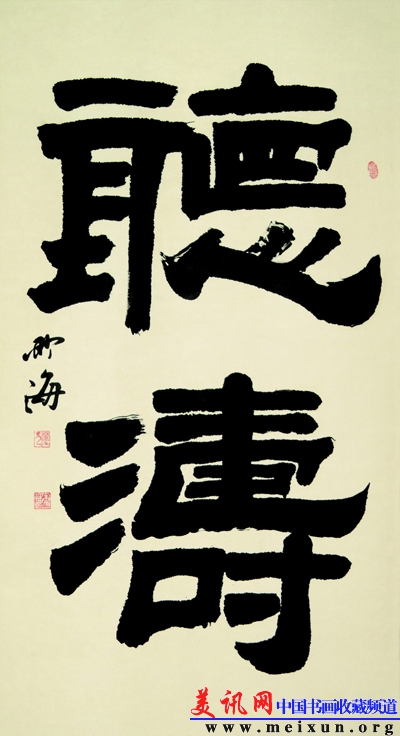 聽
濤
海
美讯网中国书画收藏频道
www.meixun.org